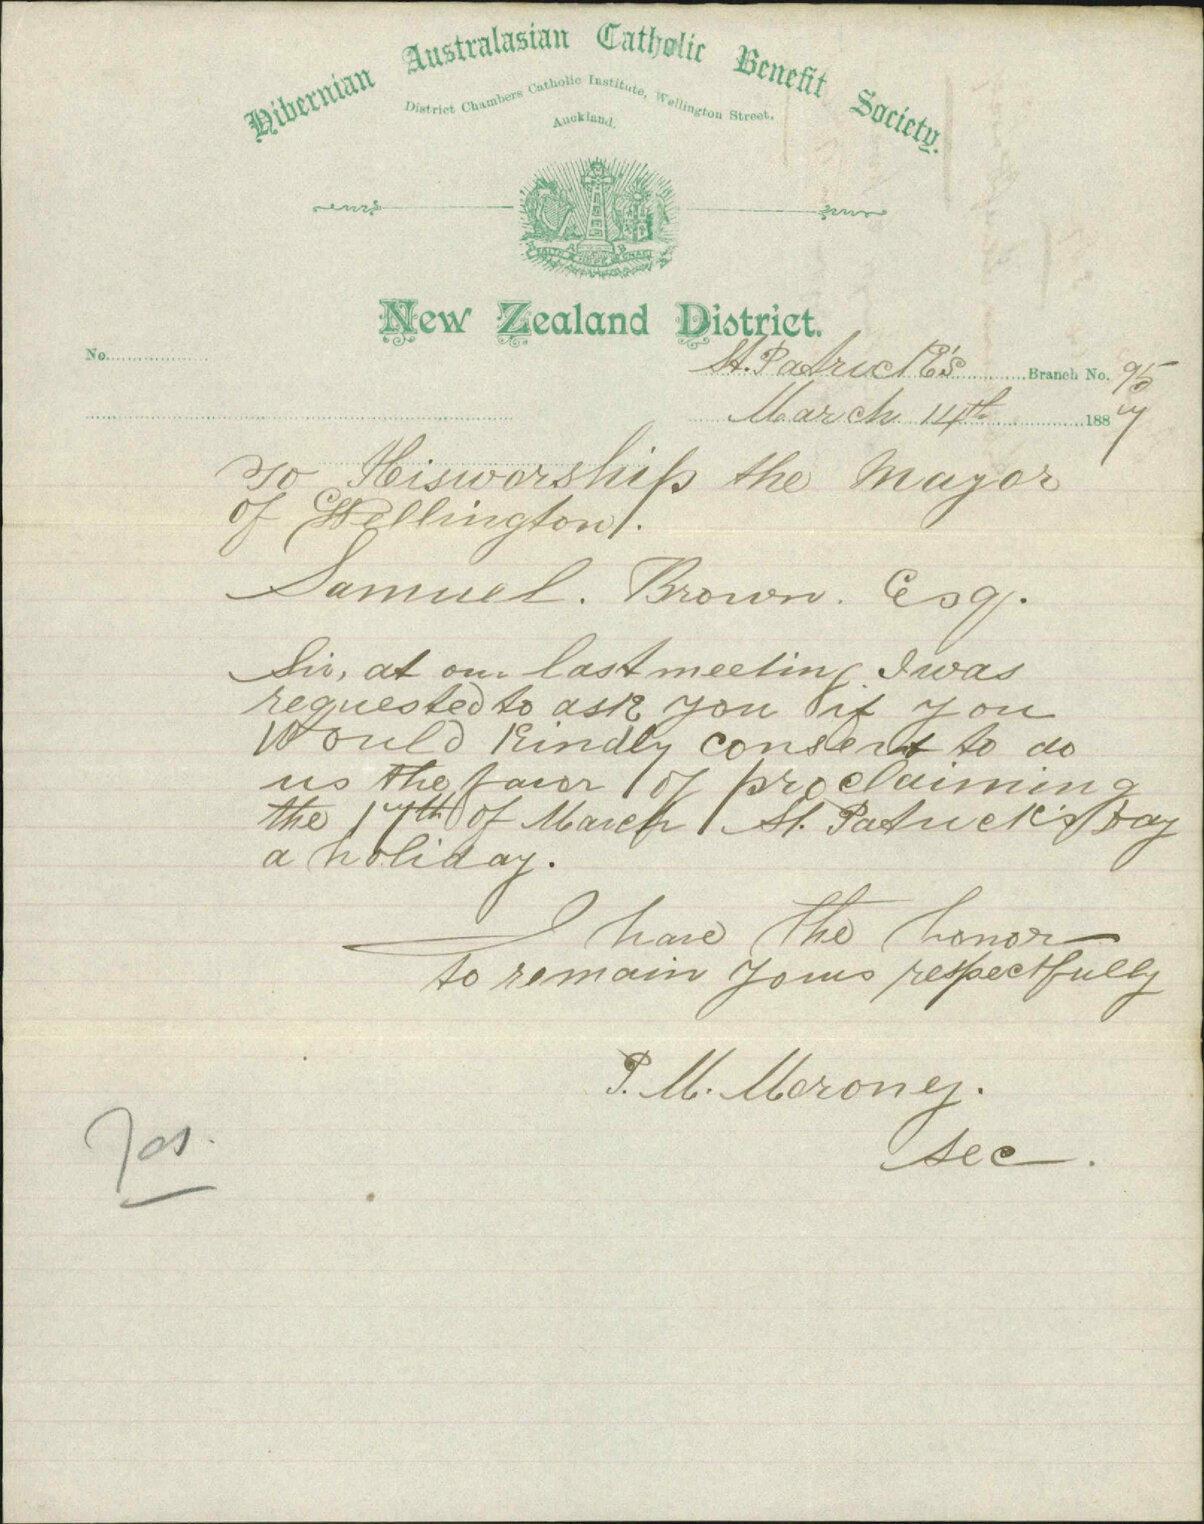 Hibernian Australasian Catholic Benefit Society.
District Chambers Catholic Institute, Wellington Street,
Auckland,
New Zealand District.
No.
St. Patrick's Branch No. 95
March 14th 1887
To His worship the Mayor
of Wellington.
Samuel. Brown. Esq.
Sir, at our last meeting I was
requested to ask you if you
Would kindly consent to do
us the favor of proclaiming
the 17th of March St. Patrick's Day
a holiday.
I have the honor
to remain yours respectfully
P. M. Moroney.
Sec.
Yes.